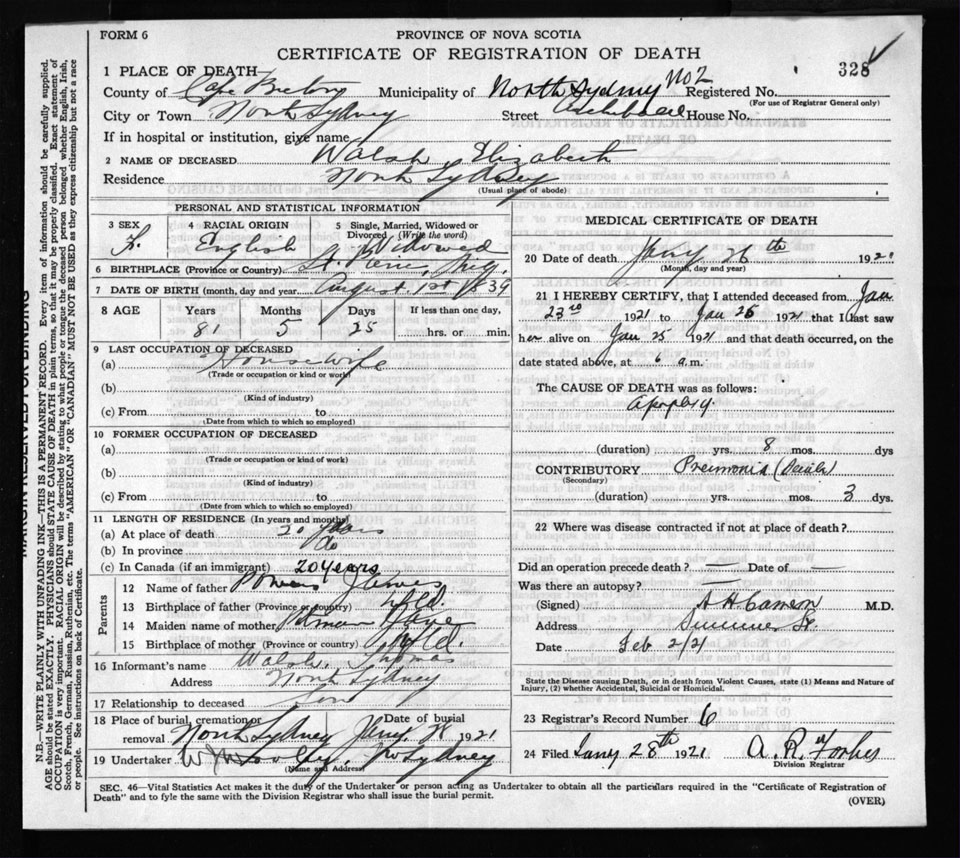 FORM 6
PROVINCE OF NOVA SCOTIA
CERTIFICATE OF REGISTRATION OF DEATH
328
1 PLACE OF DEATH
County of Cape Breton Municipality of North Sydney No 2 Registered No.
(For use of Registrar General only)
City or Town North Sydney Street Archibald House No.
If in hospital or institution, give name
2 NAME OF DECEASED Walsh Elizabeth
Residence North Sydney
(Usual place of abode)
PERSONAL AND STATISTICAL INFORMATION
3 SEX 4 RACIAL ORIGIN 5 Single, Married, Widowed or Divorced (Write the word)
F. English Widowed
6 BIRTHPLACE (Province or Country) St. Pierre, Miq.
7 DATE OF BIRTH (month, day and year) August 1st 1839
8 AGE Years Months Days If less than one day,
81 5 25 hrs. or min.
9 LAST OCCUPATION OF DECEASED
(a) Housewife
(Trade or occupation or kind of work)
(b)
(Kind of industry)
(c) From to
(Date from which to which so employed)
10 FORMER OCCUPATION OF DECEASED
(a)
(Trade or occupation or kind of work)
(b)
(Kind of industry)
(c) From to
(Date from which to which so employed)
11 LENGTH OF RESIDENCE (In years and months)
(a) At place of death 20 years
(b) In province do
(c) In Canada (if an immigrant) 20 years
Parents
12 Name of father James
13 Birthplace of father (Province or country) Nfld.
14 Maiden name of mother
15 Birthplace of mother (Province or country) Nfld.
16 Informant's name Walsh, Thomas
Address North Sydney
17 Relationship to deceased son
18 Place of burial, cremation or removal North Sydney Date of burial Jany. 28 1921
19 Undertaker N Sydney
(Name and Address)
MEDICAL CERTIFICATE OF DEATH
20 Date of death Jany 26th 1921
(Month, day and year)
21 I HEREBY CERTIFY, that I attended deceased from Jan
23rd 1921 to Jan 26 1921 that I last saw
her alive on Jan 25 1921 and that death occurred, on the
date stated above, at 6 a.m.
The CAUSE OF DEATH was as follows:
Apoplexy.
(duration) yrs. 8 mos. dys
CONTRIBUTORY Pneumonia
(Secondary)
(duration) yrs. mos. 3 dys.
22 Where was disease contracted if not at place of death?
Did an operation precede death? — Date of —
Was there an autopsy? —
(Signed) A H Cameron M.D.
Address Summer St.
Date Feb 2/21
State the Disease causing Death, or in death from Violent Causes, state (1) Means and Nature of Injury, (2) whether Accidental, Suicidal or Homicidal.
23 Registrar's Record Number 6
24 Filed Jany 28th 1921 A. R. Forbes
Division Registrar
SEC. 46—Vital Statistics Act makes it the duty of the Undertaker or person acting as Undertaker to obtain all the particulars required in the "Certificate of Registration of
Death" and to fyle the same with the Division Registrar who shall issue the burial permit.
(OVER)
MARGIN RESERVED FOR BINDING
N.B.—WRITE PLAINLY WITH UNFADING INK—THIS IS A PERMANENT RECORD. Every item of information should be carefully supplied.
AGE should be stated EXACTLY. PHYSICIANS should STATE CAUSE OF DEATH in plain terms, so that it may be properly classified. Exact statement of
OCCUPATION is very important. RACIAL ORIGIN will be described by stating to what people or tongue the deceased person belonged, whether English, Irish,
Scotch, French, German, Russian, Ruthenian, etc. The terms "AMERICAN" OR "CANADIAN" MUST NOT BE USED as they express citizenship but not a race
or people. See instructions on back of Certificate.